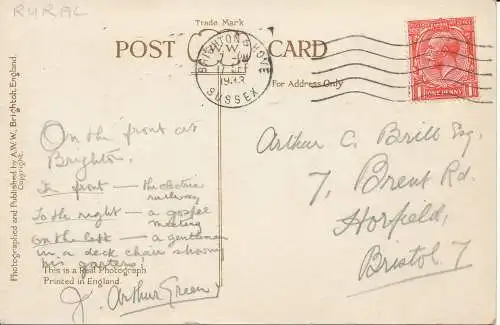 RURAL
Trade Mark
POST CARD
BRIGHTON & HOVE
SUSSEX
For Address Only
ONE PENNY
Photographed and Published by A.W.W., Brighton, England.
Copyright.
On the front at
Brighton.
In front — the electric
railway
To the right — a gospel
meeting
On the left — a gentleman
in a deck chair showing
his garters!
This is a Real Photograph
Printed in England.
J. Arthur Green
Arthur C. Brill Esq.
7, Brent Rd.
Horfield,
Bristol. 7